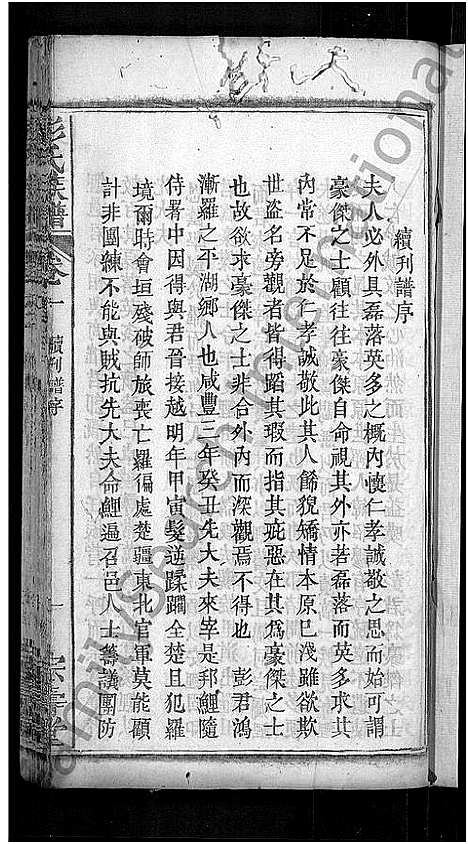 續刊譜序
夫人必外具磊落英多之槪內懷仁孝誠敬之思而始可謂
豪傑之士顧往往豪傑自命視其外亦若磊落而英多求其
內常不足於仁孝誠敬此其人餙貌矯情本原已淺雖欲欺
世盜名旁觀者皆得蹈其瑕而指其疵惡在其爲豪傑之士
也故欲求豪傑之士非合外內而深觀焉不得也　彭君鴻
漸羅之平湖鄉人也咸豐三年癸丑先大夫來宰是邦鯉隨
侍署中因得與君晉接越明年甲寅髮逆蹂躪全楚且犯羅
境爾時會垣殘破師旅喪亡羅徧處楚疆東北官軍莫能顧
計非團練不能與賊抗先大夫命鯉遍召邑人士籌議團防
彭氏族譜
卷一
續刊譜序
一